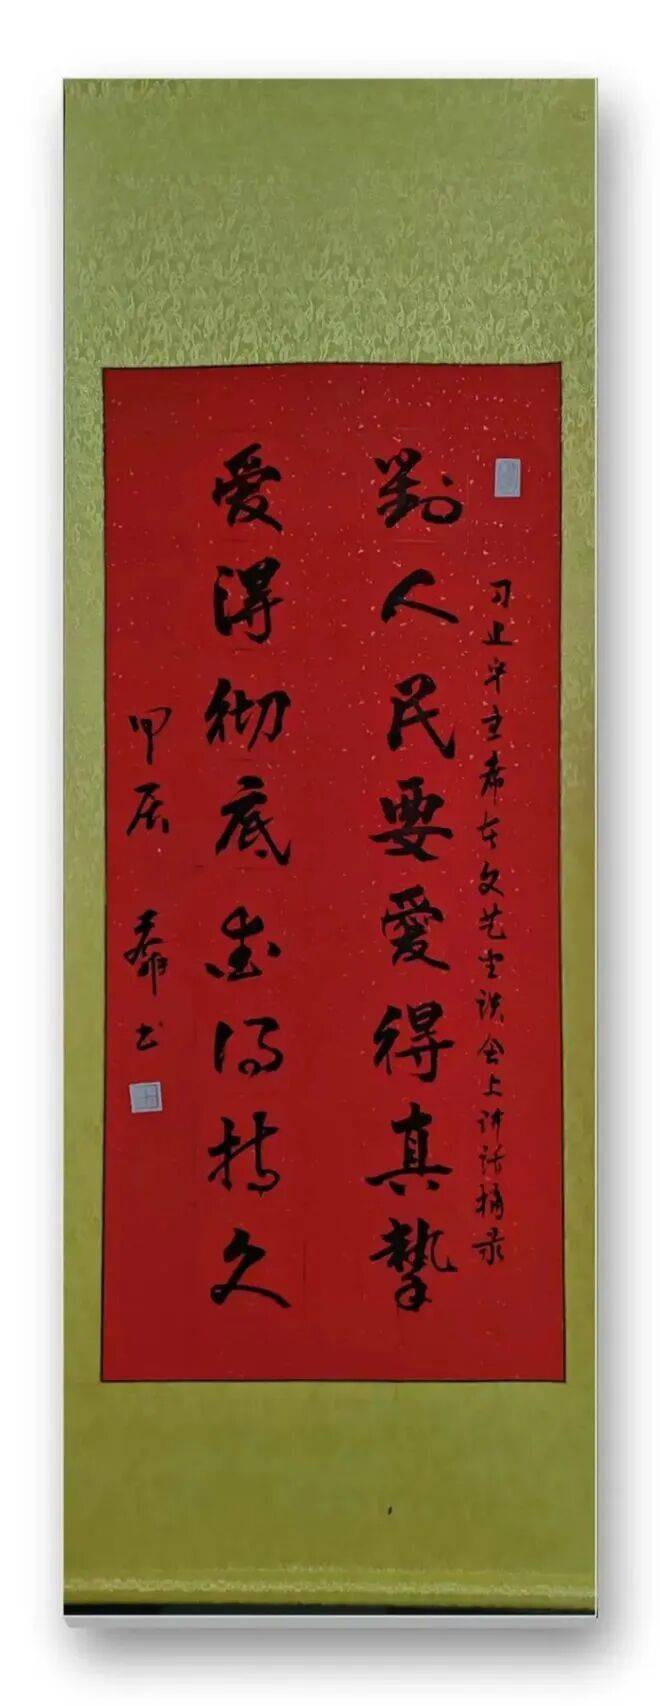 习近平主席在文艺座谈会上讲话摘录
對人民要愛得真摯
愛得彻底愛得持久
甲辰 書